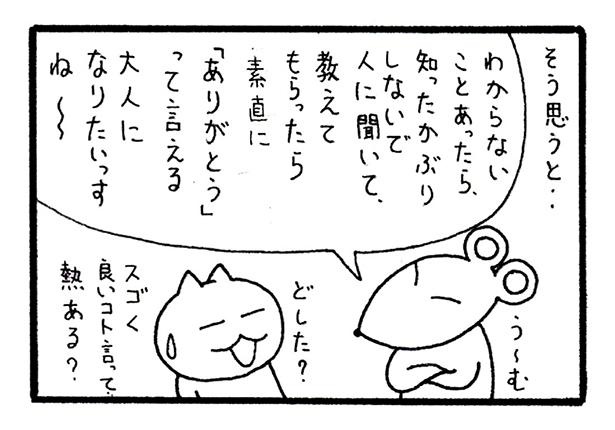 そう思うと‥
わからない
ことあったら、
知ったかぶり
しないで
人に聞いて、
教えて
もらったら
素直に
「ありがとう」
って言える
大人に
なりたいっす
ね〜〜
う〜む
どした?
スゴく
良いコト言って‥
熱ある?